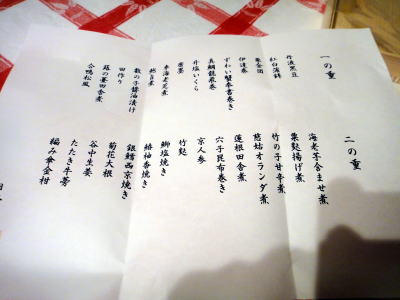 一の重
丹波黒豆
紅白蒲鉾
栗金団
伊達巻
ずわい蟹奉書巻き
真鯛龍飛巻
丼塩いくら
唐墨
車海老芝煮
鮑旨煮
数の子醤油漬け
田作り
蕗の薹田舎煮
合鴨松風
二の重
海老芋含ませ煮
粟麩揚げ煮
竹の子甘辛煮
慈姑オランダ煮
蓮根田舎煮
穴子昆布巻き
京人参
竹麩
鰤塩焼き
椿柚香焼き
銀鱈西京焼き
菊花大根
谷中生姜
たたき牛蒡
編み傘金柑